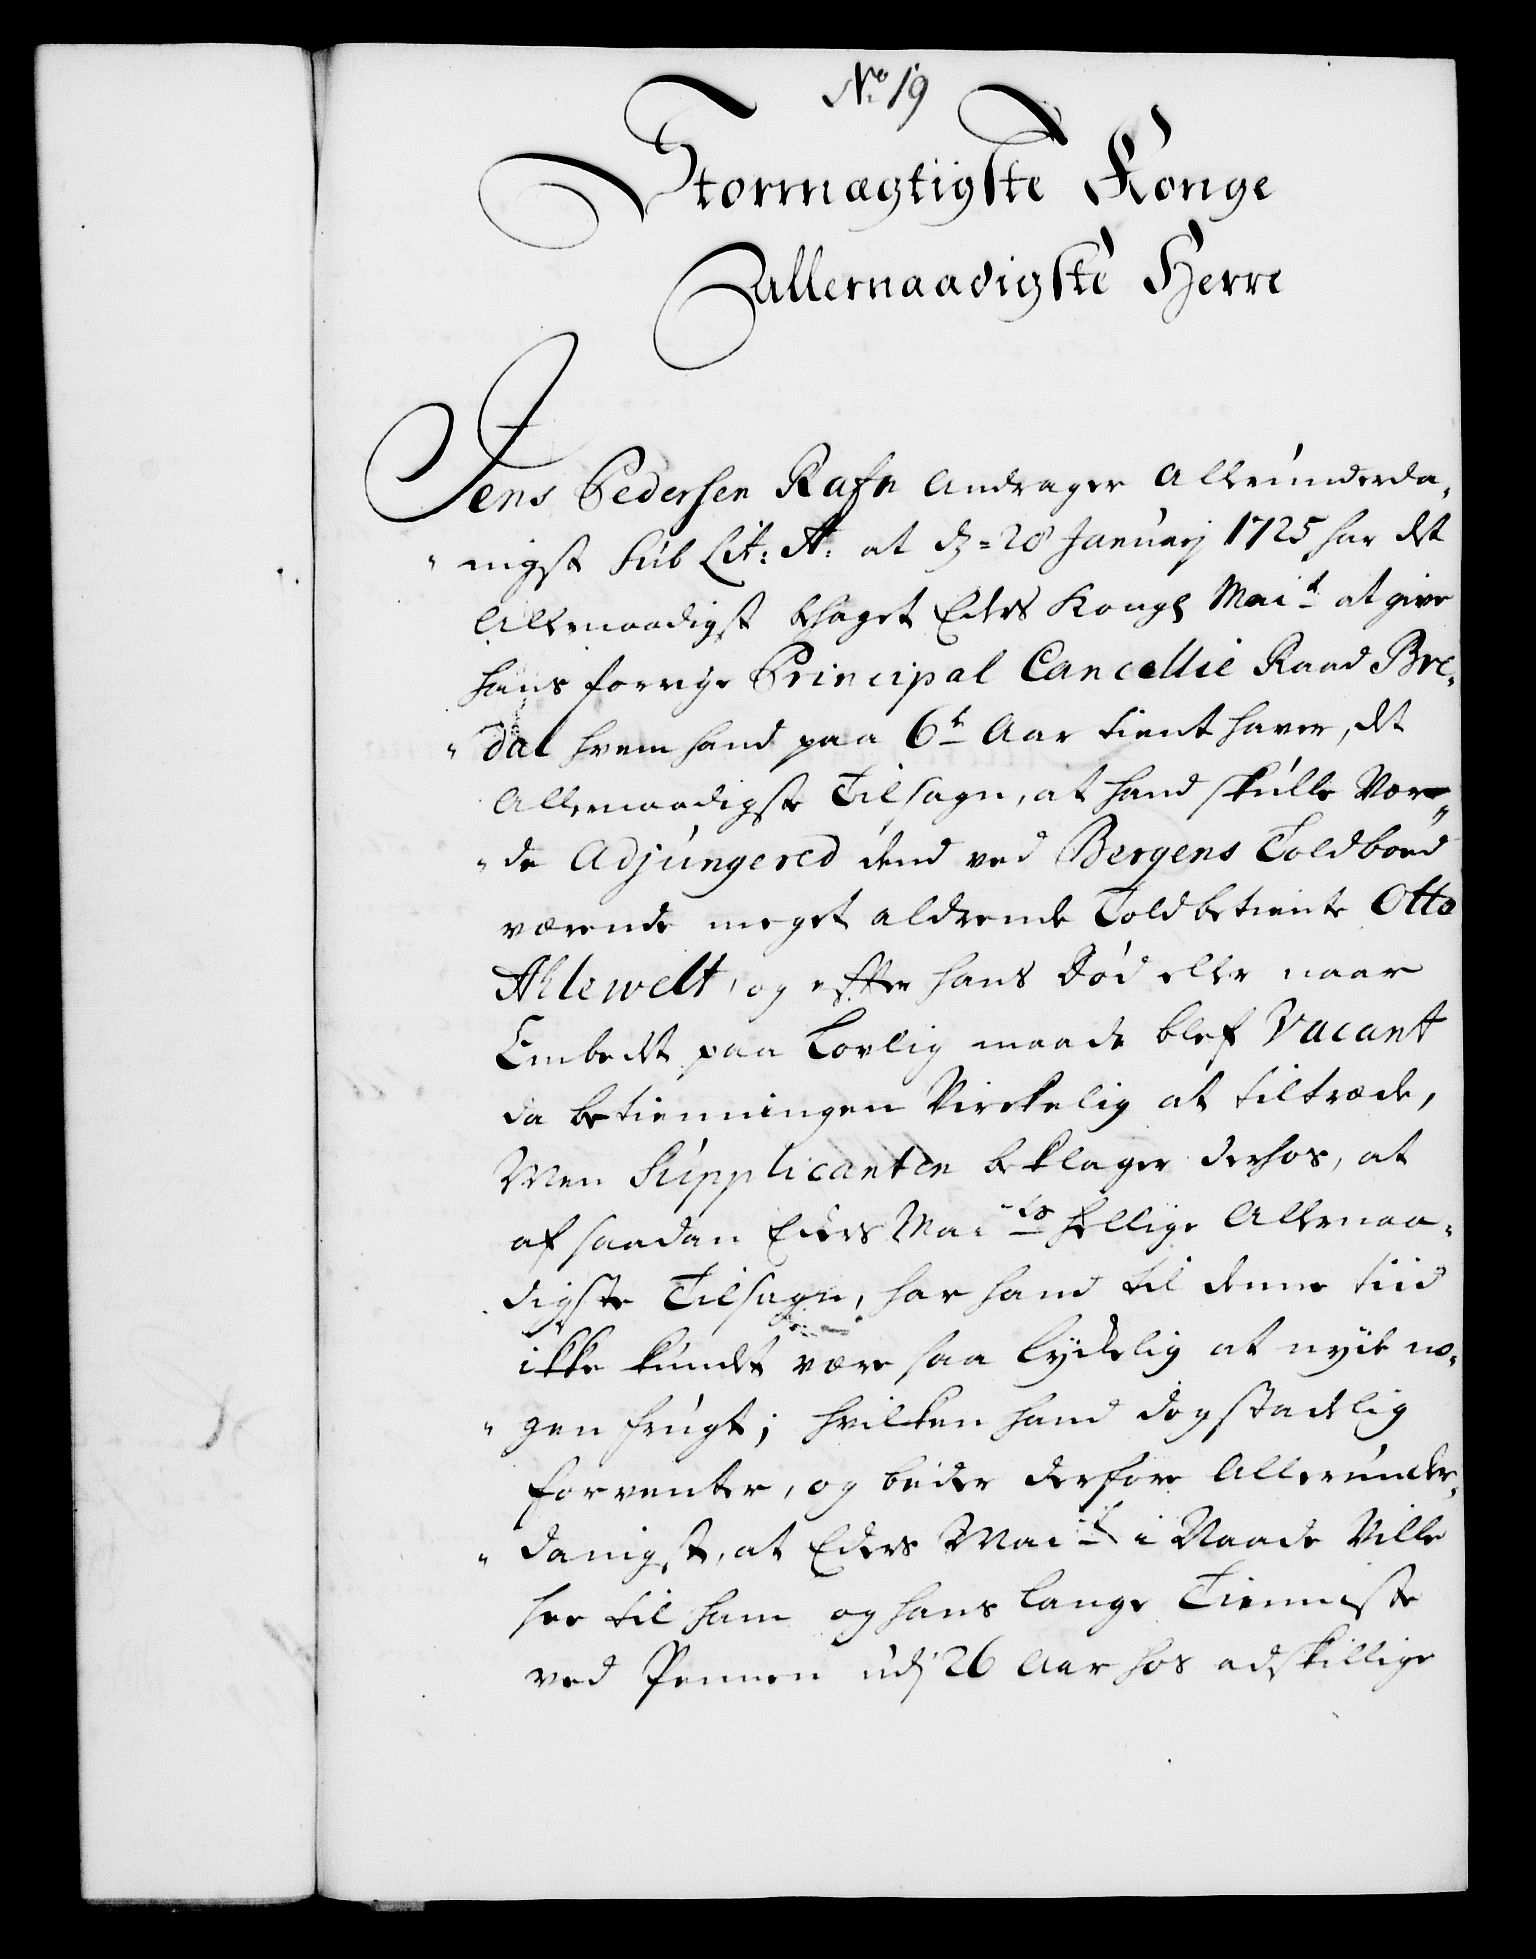 No 19
Stormægtigste Konge
Allernaadigste Herre
Jens Pedersen Rafn Andrager Allerunderda„
„nigst Sub Lit: A: at d: 28 Januarij 1725 har det
Allernaadigst behaget Eders Kongl Mait at give
hans forrige Principal Cancellie Raad Bre„
„dal hvem hand paa 6te Aar tient haver, det
Allernaadigste Tilsagn, at hand skulle Vor„
„de Adjungered dend ved Bergens Toldboed
værende meget aldrende Toldbetiente Otto
Ahlewelt, og effter hans Død eller naar
Embedet paa Lovlig maade blef Vacant
da betienningen Virkelig at tiltræde,
Men Supplicanten beklager derhos, at
af saadan Eders Maits hellige Allernaa„
digste Tilsagn, har hand til denne tiid
ikke kundet være saa lydelig at nyde no„
„gen frugt; hvilken hand dog stadelig
forventer, og beder derfore Allerunder„
„danigst, at Eders Mait i Naade Ville
see til ham og hans lange Tienneste
ved Pennen udj 26 Aar hos adskillige